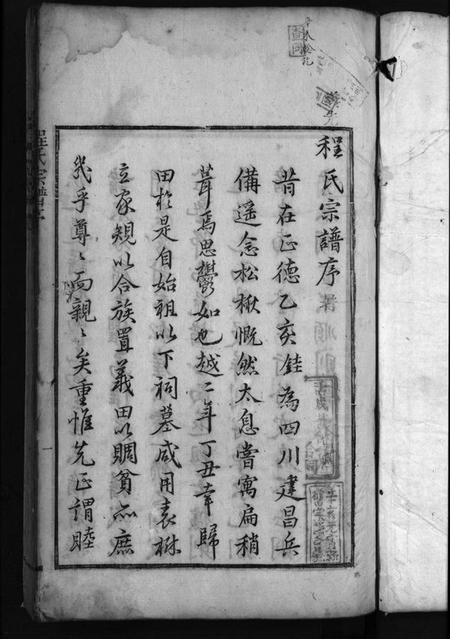 程氏宗譜序
昔在正德乙亥銈為四川建昌兵
備遥念松楸慨然太息嘗寓扁稍
葺焉思鬱如也越二年丁丑幸歸
田於是自始祖以下祠墓咸用表楙
立家規以合族置義田以賙貧亦庶
幾乎尊〻而親〻矣重惟先正謂睦
程氏宗譜
一